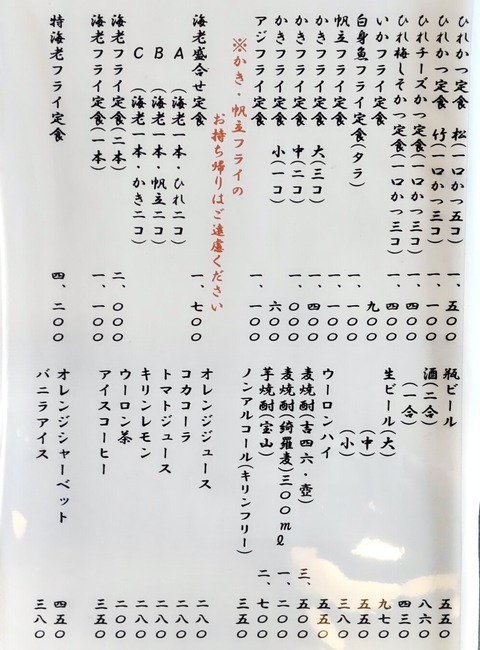 ひれかつ定食 松(一口かつ五コ) 一、五〇〇
ひれかつ定食 竹(一口かつ三コ) 一、一〇〇
ひれチーズかつ定食(一口かつ三コ) 一、四〇〇
ひれ梅しそかつ定食(一口かつ三コ) 一、四〇〇
いかフライ定食 九〇〇
白身魚フライ定食(タラ) 一、一〇〇
帆立フライ定食 一、一〇〇
かきフライ定食 大(三コ) 一、四〇〇
かきフライ定食 中(二コ) 一、〇〇〇
かきフライ定食 小(一コ) 六〇〇
アジフライ定食 一、一〇〇
※かき・帆立フライの
お持ち帰りはご遠慮ください
海老盛合せ定食 一、七〇〇
A (海老一本・ひれ二コ)
B (海老一本・帆立二コ)
C (海老一本・かき二コ)
海老フライ定食(二本) 二、〇〇〇
海老フライ定食(一本) 一、一〇〇
特海老フライ定食 四、二〇〇
瓶ビール 五五〇
酒(二合) 八六〇
(一合) 四三〇
生ビール(大) 九七〇
(中) 五五〇
(小) 三八〇
ウーロンハイ 五五〇
麦焼酎(吉四六・壺) 三、五〇〇
麦焼酎(綺羅麦)三〇〇ml 一、二〇〇
芋焼酎(宝山) 二、七〇〇
ノンアルコール(キリンフリー) 三五〇
オレンジジュース 二八〇
コカコーラ 二八〇
トマトジュース 二八〇
キリンレモン 二八〇
ウーロン茶 二〇〇
アイスコーヒー 三五〇
オレンジシャーベット 四五〇
バニラアイス 三八〇